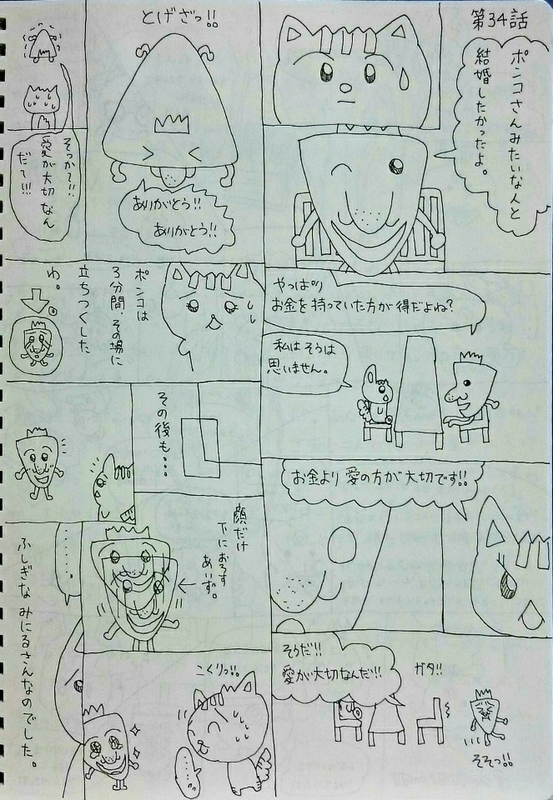 第34話
ポンコさんみたいな人と
結婚したかったよ。
やっぱり
お金を持っていた方が得だよね?
私はそうは
思いません。
お金より愛の方が大切です!!
そうだ!!
愛が大切なんだ!!
ガタ!!
そそっ!!
とげざっ!!
ありがとう!!
ありがとう!!
愛が大切なん
だて!!!
ポンコは
3分間その場に
立ちつくした
わ。
その後も・・・
顔だけ
下におろす
あいず。
こくりっ!!
ふしぎなみにるさんなのでした。